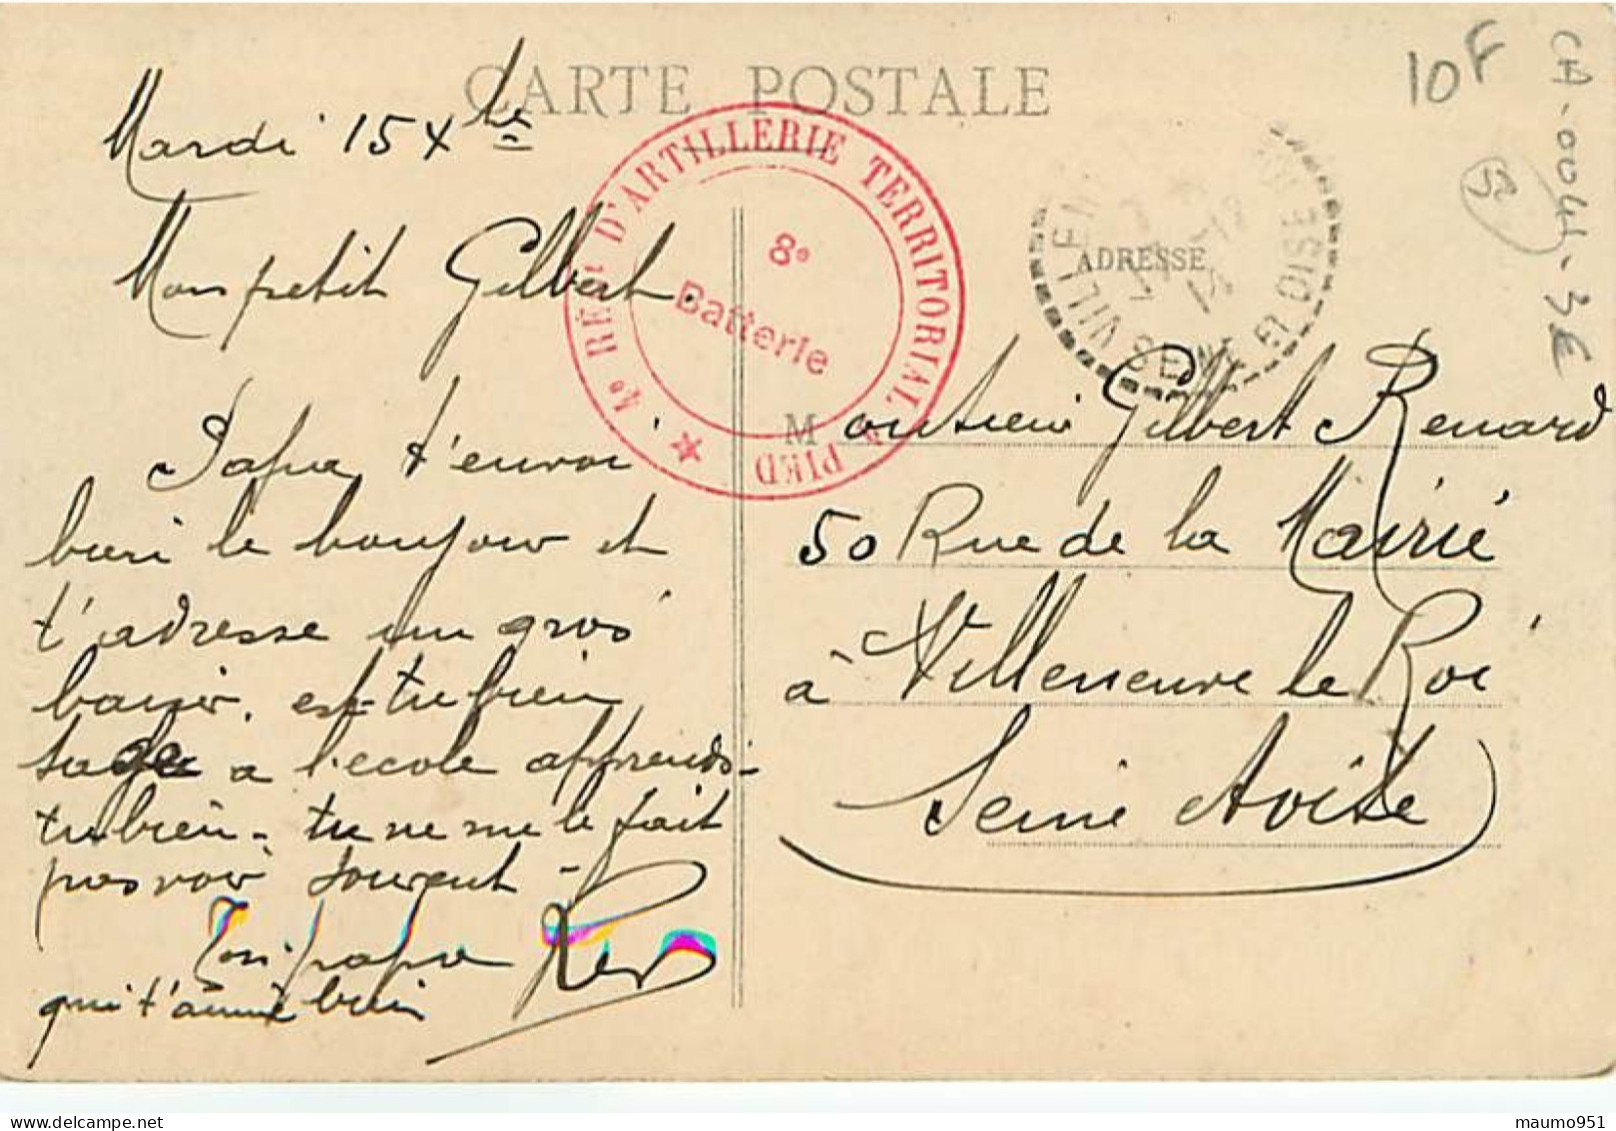 CARTE POSTALE
Mardi 15 Xbre
Mon petit Gilbert.
Papa t'envoi
bien le bonjour et
t'adresse un gros
baiser. est-tu bien
sage a l'ecole apprends-
tu bien - tu ne me le fait
pas voir souvent -
Ton papa
qui t'aime bien
4e RÉGt D'ARTILLERIE TERRITORIAL A PIED
8e
Batterie
VILLEN
SEINE ET OISE
ADRESSE
Monsieur Gilbert Renard
50 Rue de la Mairie
à Villeneuve le Roi
Seine et Oise
10F
CH-0041-3€
maumo951